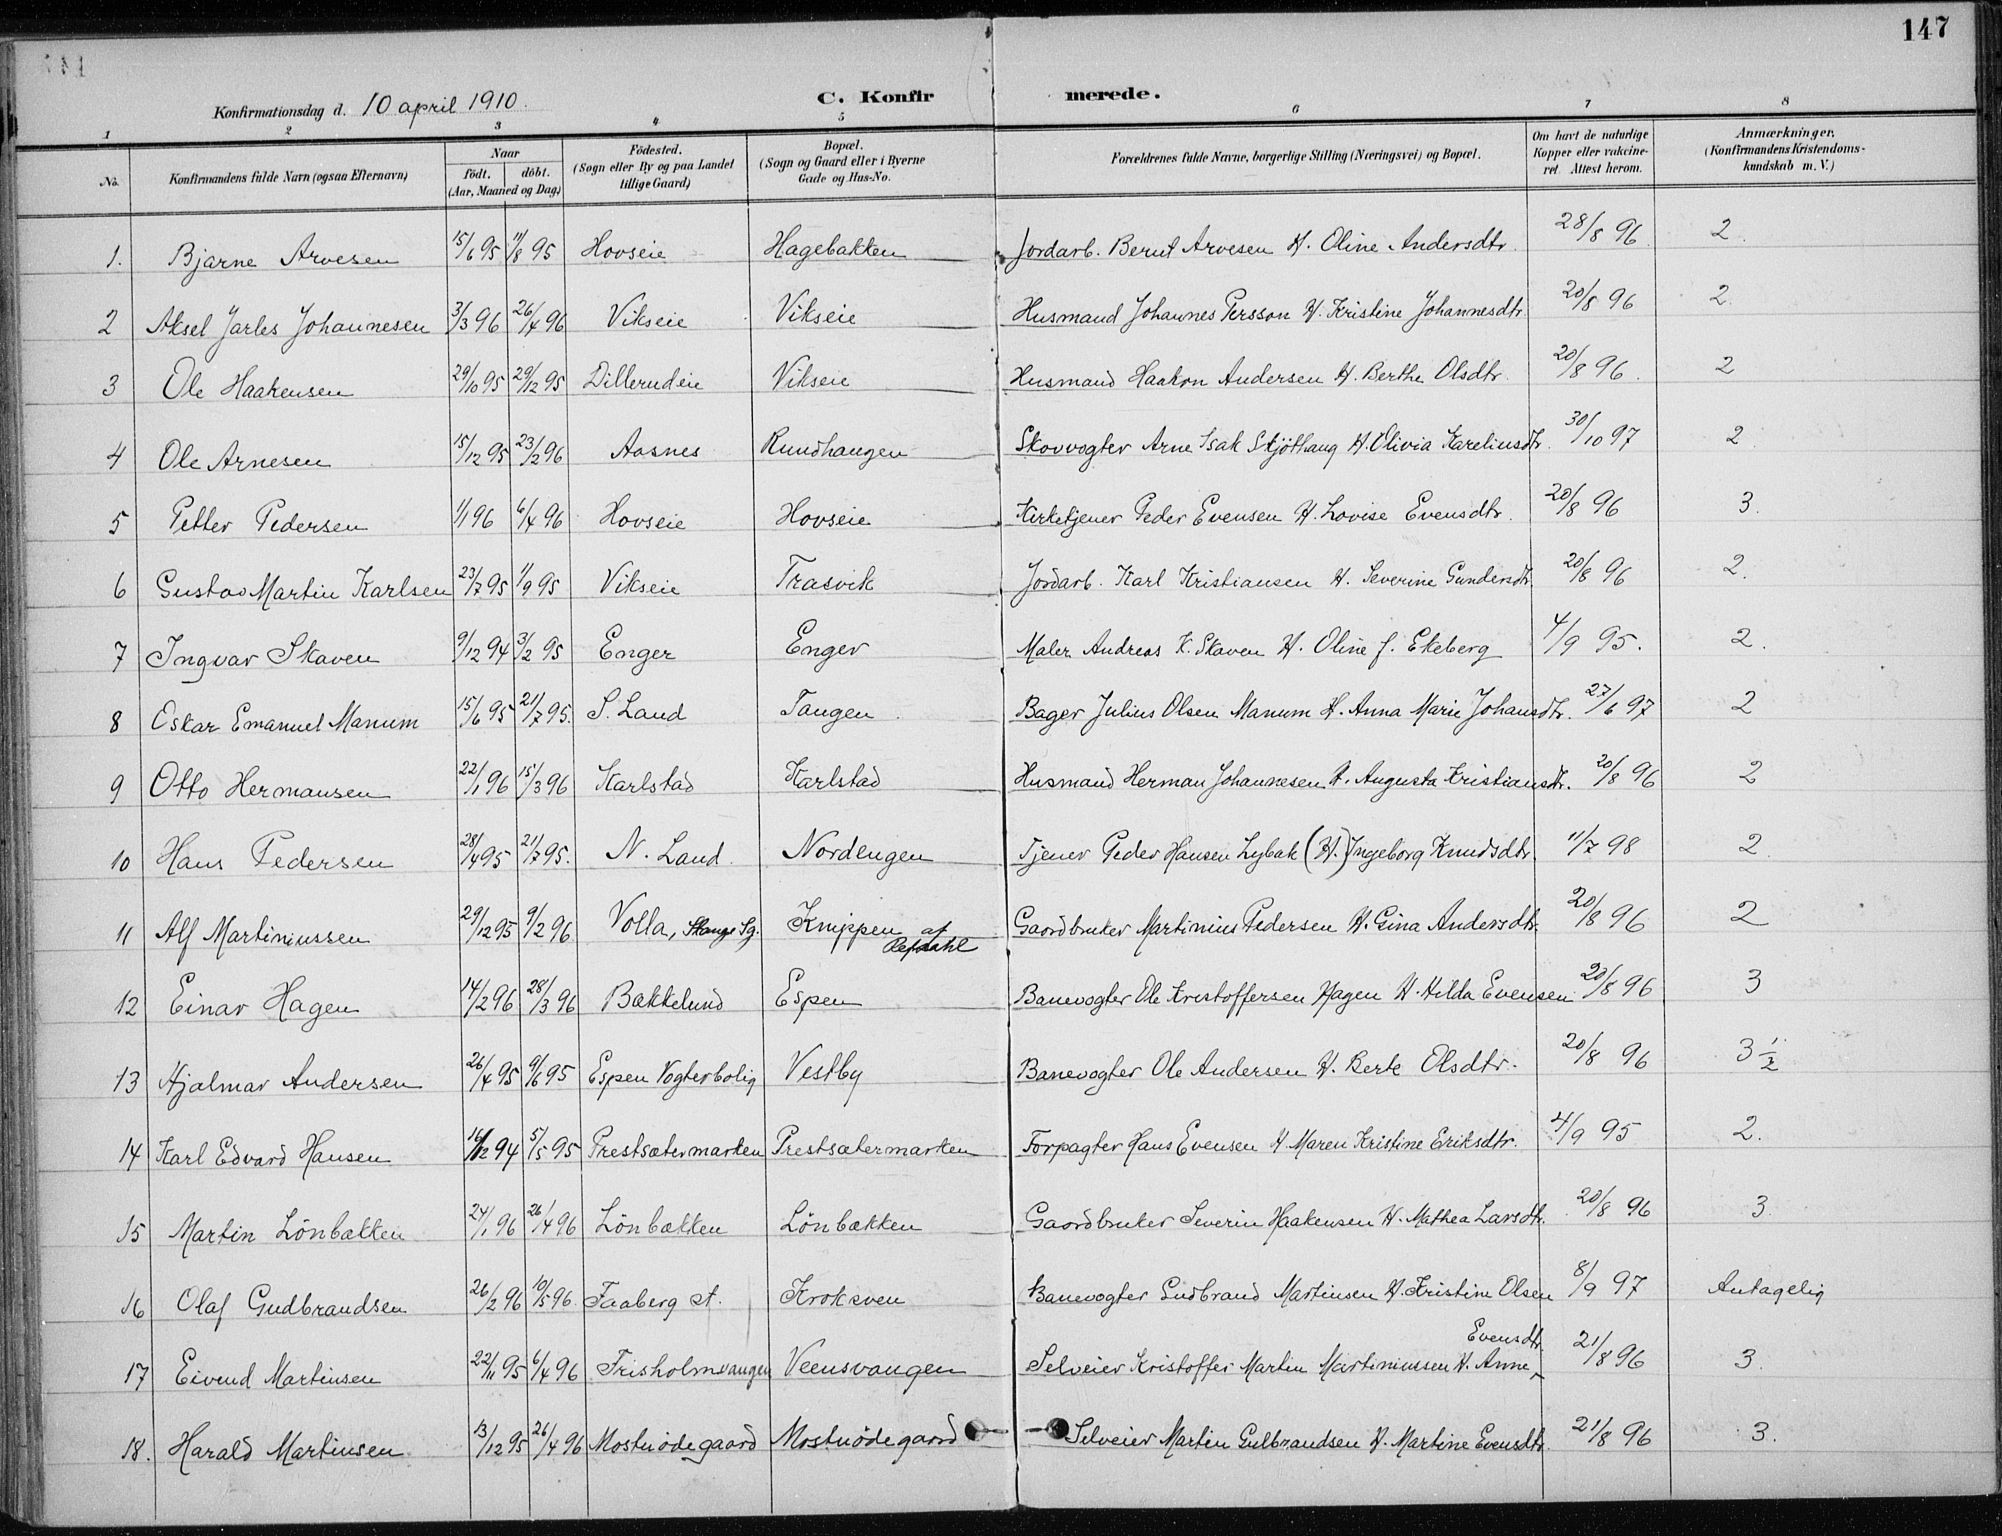 147
Konfirmationsdag d. 10 april 1910.
C. Konfirmerede.
1 2 3 4 5 6 7 8
No. Konfirmandens fulde Navn (ogsaa Efternavn) Naar født. døbt. (Aar, Maaned og Dag) Fødested. (Sogn eller By og paa Landet tillige Gaard) Bopæl. (Sogn og Gaard eller i Byerne Gade og Hus-No. Forældrenes fulde Navne, borgerlige Stilling (Næringsvei) og Bopæl. Om havt de naturlige Kopper eller vakcineret. Attest herom. Anmærkninger. (Konfirmandens Kristendomskundskab m. V.)
1. Bjarne Arvesen 15/6 95 11/8 95 Hovseie Hagebakken Jordarb. Bernt Arvesen H. Oline Andersdtr. 28/8 96. 2.
2 Aksel Jarles Johannesen 3/3 96 26/4 96 Vikseie Vikseie Husmand Johannes Persson H. Kristine Johannesdtr. 20/8 96 2.
3 Ole Haakensen 29/10 95 29/12 95 Dillerudeie Vikseie Husmand Haakon Andersen H. Berthe Olsdtr. 20/8 96. 2
4 Ole Arnesen 15/12 95 23/2 96 Aasnes Rundhaugen Skovvogter Arne Isak Skjöthaug H. Olivia Kareliusdtr. 30/10 97 2
5 Petter Pedersen 1/1 96 6/4 96 Hovseie Hovseie Kirketjener Peder Evensen H. Lovise Evensdtr. 20/8 96 3.
6 Gustav Martin Karlsen 23/7 95 1/9 95 Vikseie Trasvik Jordarb. Karl Kristiansen H. Severine Gundersdtr. 20/8 96 2.
7 Ingvar Skaven 9/12 94 3/2 95 Enger Enger Maler Andreas K. Skaven H. Oline f. Ekeberg 4/9 95. 2.
8 Oskar Emanuel Manum 15/6 95 21/7 95. S. Land Tangen. Bager Julius Olsen Manum H. Anna Marie Johansdtr. 27/6 97 2
9 Otto Hermansen 22/1 96 15/3 96 Karlstad Karlstad Husmand Herman Johannesen H. Augusta Kristiansdtr. 20/8 96 2
10 Hans Pedersen 28/4 95 21/7 95. N. Land Nordengen Tjener Peder Hansen Lybak (H.) Ingeborg Knudsdtr. 11/7 98 2
11 Alf Martiniussen 29/12 95 9/2 96 Volla, Stange Sg. Knippen af Refsdahl Gaardbruker Martinius Pedersen H. Gina Andersdtr. 20/8 96 2
12 Einar Hagen 14/2 96 28/3 96 Bakkelund Espen Banevogter Ole Kristoffersen Hagen H. Hilda Evensen 20/8 96 3
13 Hjalmar Andersen 26/4 95 9/6 95 Espen Vogterbolig Vestby Banevogter Ole Andersen H. Berte Olsdtr. 20/8 96 3 1/2
14 Karl Edvard Hansen 16/12 94 5/5 95 Prestsætermarken Prestsætermarken Forpagter Hans Evensen H. Maren Kristine Eriksdtr. 4/9 95 2.
15 Martin Lönbækken 24/1 96 26/4 96 Lönbækken Lönbækken Gaardbruker Severin Haakensen H. Mathea Larsdtr. 20/8 96 3.
16 Olaf Gudbrandsen 26/2 96 10/5 96. Faaberg st. Kroksven Banevogter Gudbrand Martinsen H. Kristine Olsen 8/9 97 Antagelig
17 Eivend Martinsen 22/11 95 6/4 96 Frisholmvangen Veensvangen Selveier Kristoffer Martin Martiniussen H. Anne Evensdtr. 21/8 96 3.
18. Harald Martinsen 13/12 95 26/4 96 Mostuödegaard Mostuödegaard Selveier Martin Gulbrandsen H. Martine Evensdtr. 21/8 96 3.